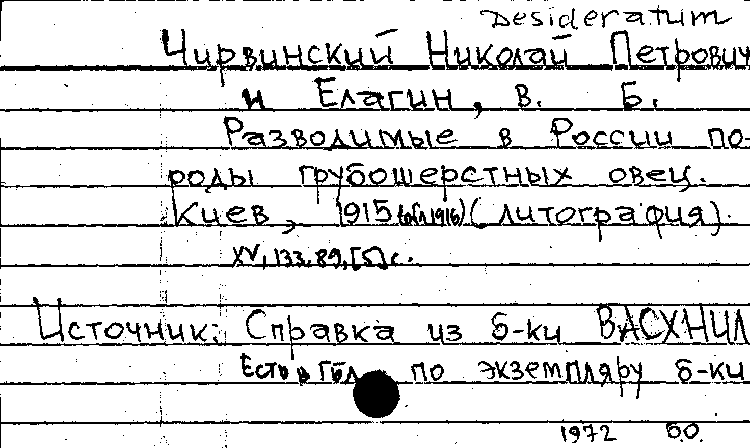 Desideratum
Чирвинский Николай Петрович
и Елагин, В. Б.
Разводимые в России по-
роды грубошерстных овец.
Киев, 1915 (обл. 1916) (литография).
XV, 133, 89, [5] с.
Источник: Справка из б-ки ВАСХНИЛ
Есть в ГБЛ по экземпляру б-ки
1972 50.